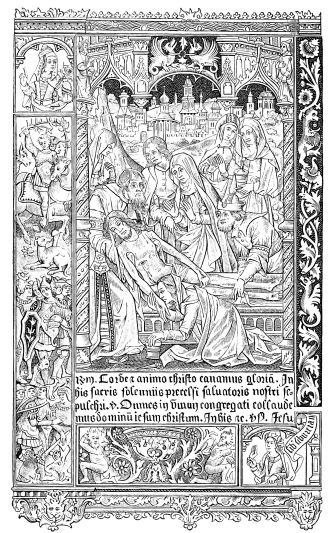 Rm. Corde ⁊ animo christo canamus gloriā. In
his sacris solenniis precelsi saluatoris nostri se
pulchri. v. Omnes in vnum congregati collaude
mus dominū iesum christum. In his ⁊c. Ps. Iesu